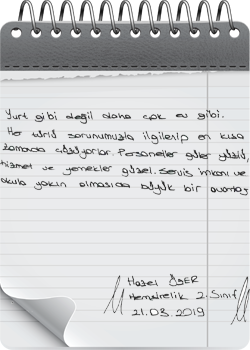 Yurt gibi değil daha çok ev gibi.
Her türlü sorunumuzla ilgilenip en kısa
zamanda çözüyorlar. Personeller güler yüzlü,
hizmet ve yemekler güzel. Servis imkanı ve
okula yakın olmasıda büyük bir avantaj
Hazel ÖZER
Hemşirelik 2. Sınıf
21.03.2019